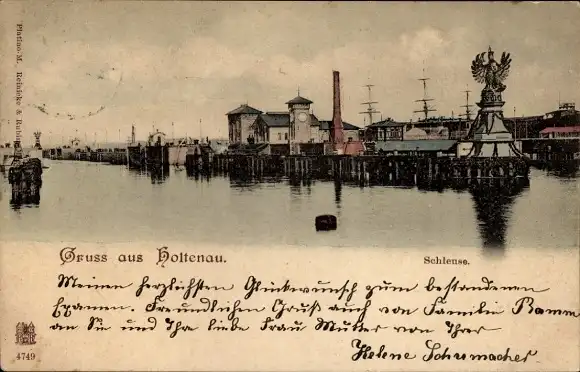 Platino-M. Reinicke & Rubin
Gruss aus Holtenau.
Schleuse.
Meinen herzlichsten Glückwunsch zum bestandenen
Examen. Freundlichen Gruß auch von Familie Ramm
an Sie und Ihre liebe Frau Mutter von Ihrer
Helene Schumacher
4749